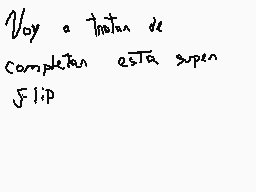 Voy a tratar de
completar esta super
Flip